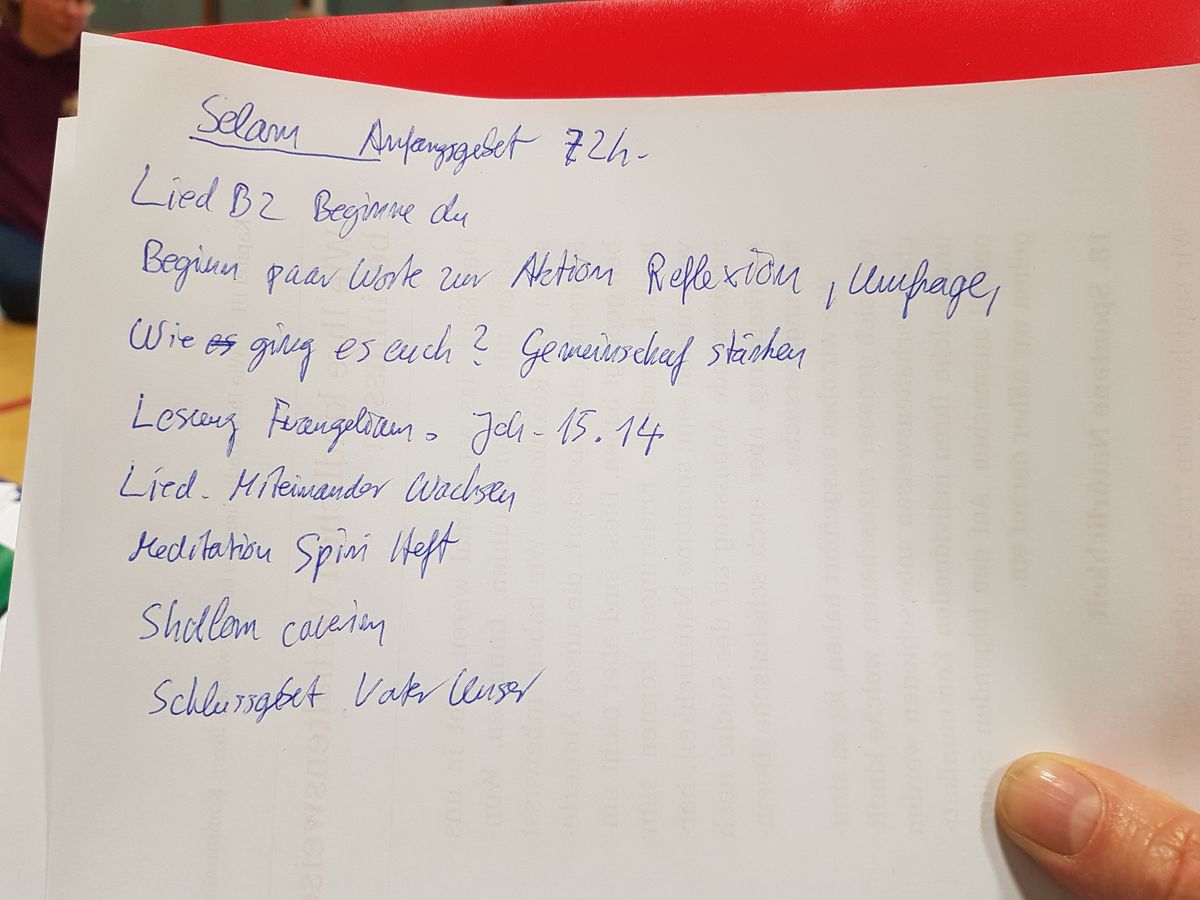 Selam Anfangsgebet 72h-
Lied B2 Beginne du
Beginn paar Worte zur Aktion Reflexion, Umfrage,
Wie es ging es euch? Gemeinschaf stärken
Lesung Evangelium. Joh-15.14
Lied. Miteinander Wachsen
Meditation Spiri Heft
Shallom
Schlussgebet Vater Unser